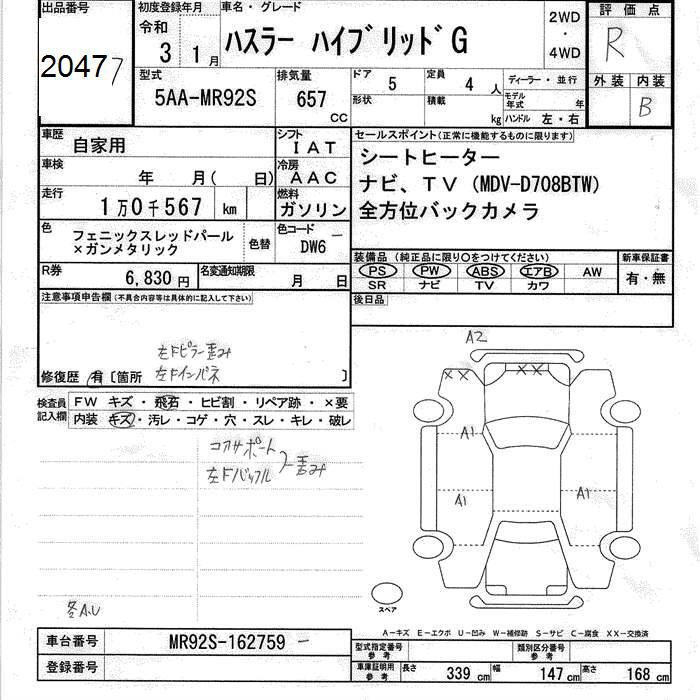 出品番号
20477
初度登録年月
令和
3 1月
車名・グレード
ハスラー ハイブリッド G
2WD
・
4WD
評価点
R
外装 内装
B
型式
5AA-MR92S
排気量
657
CC
ドア 5
定員 4 人
形状
積載 kg
ディーラー・並行
モデル年式 年
ハンドル 左・右
車歴
自家用
シフト
IAT
車検
年 月( 日)
冷房
AAC
走行
1万0千567 km
燃料
ガソリン
色
フェニックスレッドパール
×ガンメタリック
色替
色コード
DW6
R券
6,830円
名変通知期限
月 日
セールスポイント(正常に機能するものに限ります)
シートヒーター
ナビ、TV (MDV-D708BTW)
全方位バックカメラ
装備品 (純正品に限り○をつけてください)
PS PW ABS エアB AW
SR ナビ TV カワ
新車保証書
有・無
後日品
注意事項申告欄(不具合内容等は具体的に記入して下さい)
左Fピラー歪み
修復歴 有〔箇所 左Fインパネ 〕
検査員記入欄
FW キズ・飛石・ヒビ割・リペア跡・×要
内装 キズ・汚レ・コゲ・穴・スレ・キレ・破レ
コアサポート
左Fバッフル
歪み
冬A.U
A2
××
××
A1
A1
A1
スペア
A-キズ E-エクボ U-凹み W-補修跡 S-サビ C-腐食 XX-交換済
車台番号
MR92S-162759
登録番号
型式指定番号
参考
類別区分番号
参考
車庫証明用
参考
長さ 339 cm
幅 147 cm
高さ 168 cm